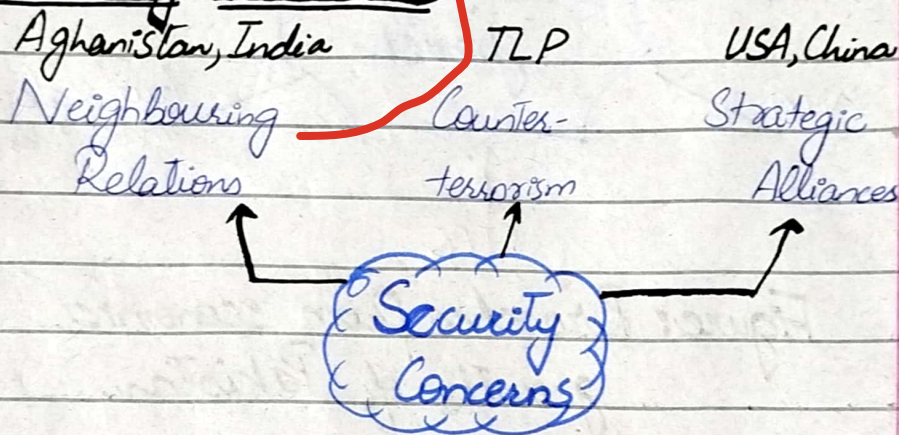 Aghanistan, India
TLP
USA, China
Neighbouring
Relations
Counter-
terrorism
Strategic
Alliances
Security
Concerns